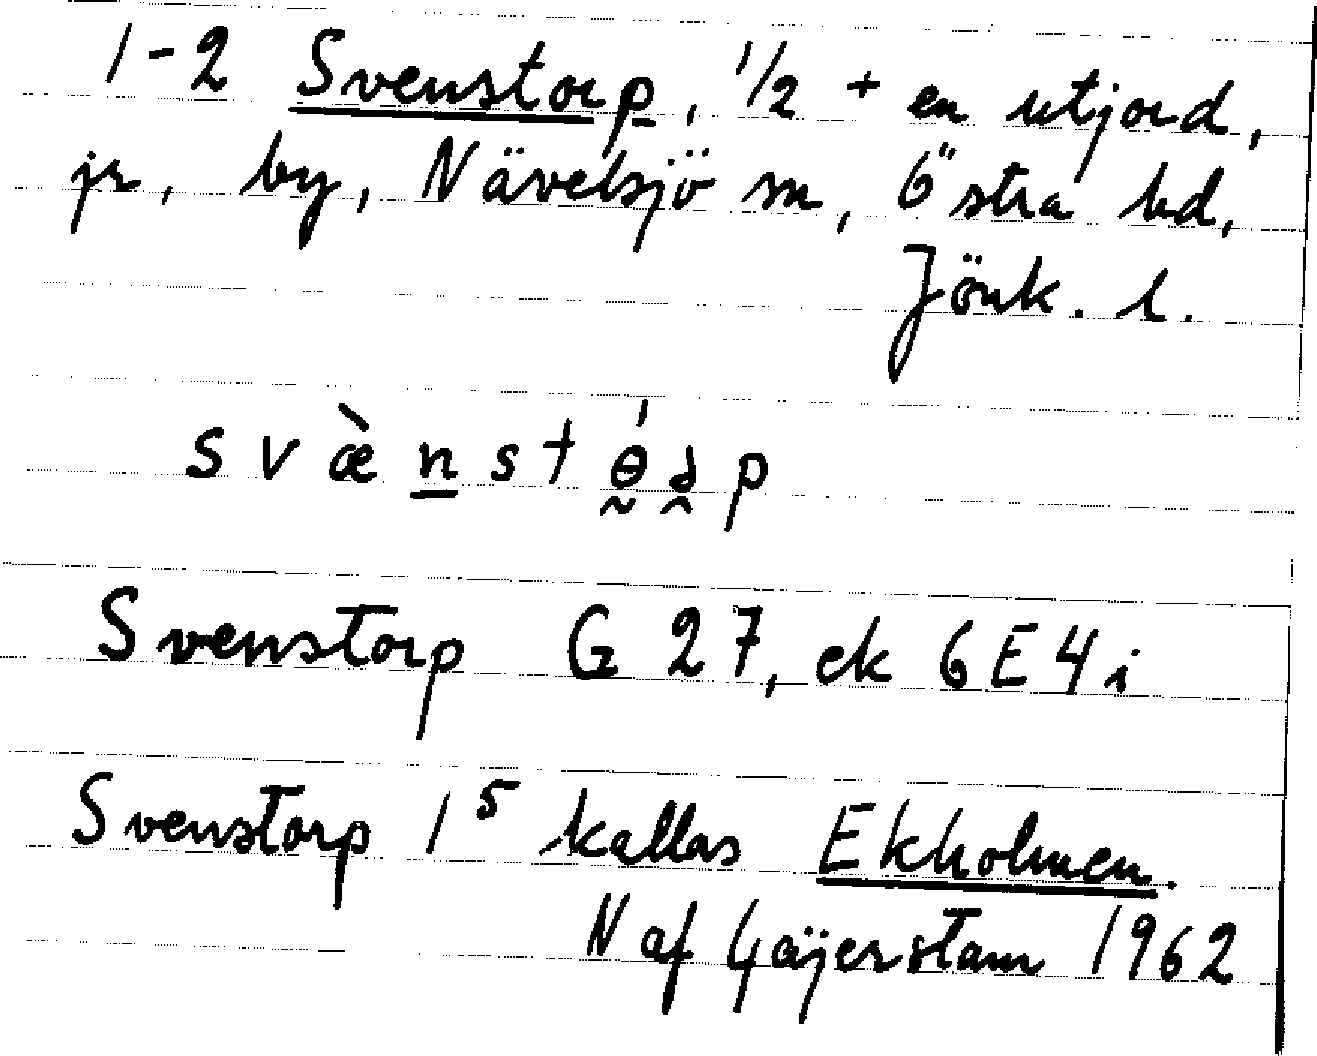 1-2 Svenstorp, 1/2 + en utjord,
jr, by, Nävelsjö sn, Östra hd,
Jönk. l.
svæ̀n̲stɵ̰́ꝺ̭p
Svenstorp G 27, ek 6E4i
Svenstorp 1⁵ kallas Ekholmen.
N af Gäijerstam 1962